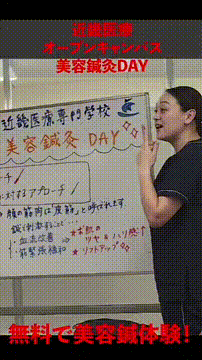 近畿医療
オープンキャンパス
美容鍼灸DAY
近畿医療専門学校
美容鍼灸 DAY
チ ✓
対するアプローチ ✓
顔の筋肉は「皮筋」と呼ばれます。
・血流改善
・筋緊張緩和
⇒
★お肌の
ツヤ&ハリ感↑
★リフトアップ
無料で美容鍼体験!